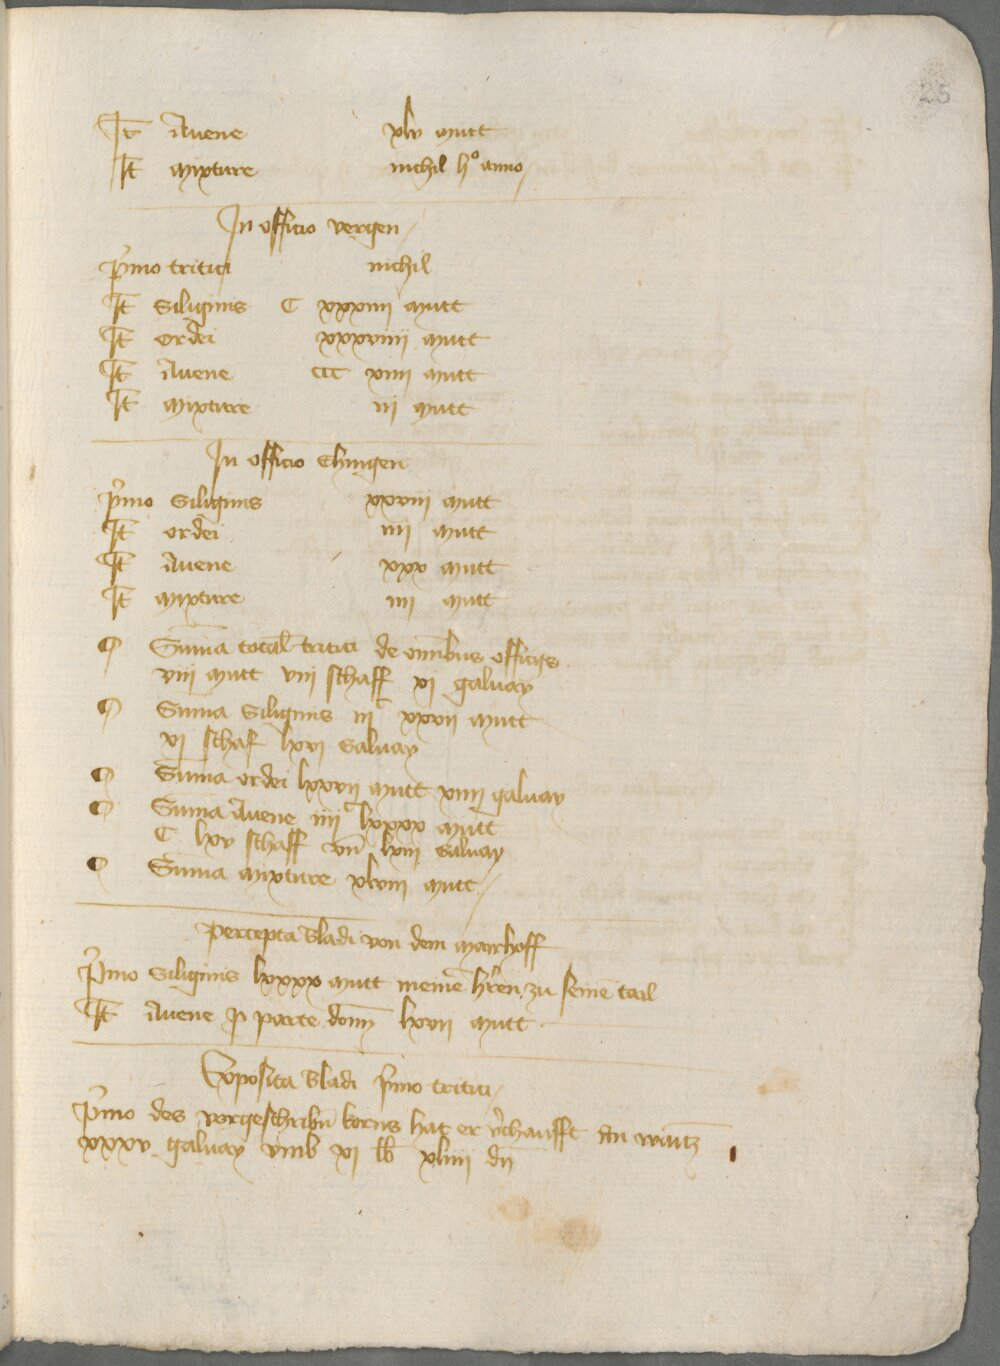 25
It Avene xlv mutt
It mixture nichil h° anno
In officio vergen
p'mo tritici nichil
It Siliginis C xxxiiii mutt
It ordei xxxviiii mutt
It Avene ccc xiiii mutt
It mixture iii mutt
In officio Ehingen
p'mo Siliginis xxviii mutt
It ordei iiii mutt
It Avene xxx mutt
It mixture iiii mutt
Sum̄a total tritici de om̄ibus officijs
viii mutt viii schaff xj galvay
Sum̄a Siliginis iiiᶜ xxvii mutt
vj schaf lxvj Galvay
Sum̄a ordei lxxvii mutt xiiij galvay
Sum̄a Avene iiiiᶜ lxxxx mutt
C lxv schaff vn̄ lxiii Galvay
Sum̄a mixture xlviii mutt
percepta Bladi von dem mairhoff
P'mo Siliginis lxxxx mutt meinē h'ren zu seinē tail
It Avene p parte dom̄ lxvii mutt
Exposita Bladi p'mo tritici
P'mo des vorgeschribn̄ korns hat er v'chaufft An waitz
xxxv galvay vmb xj lb xliiii dn̄